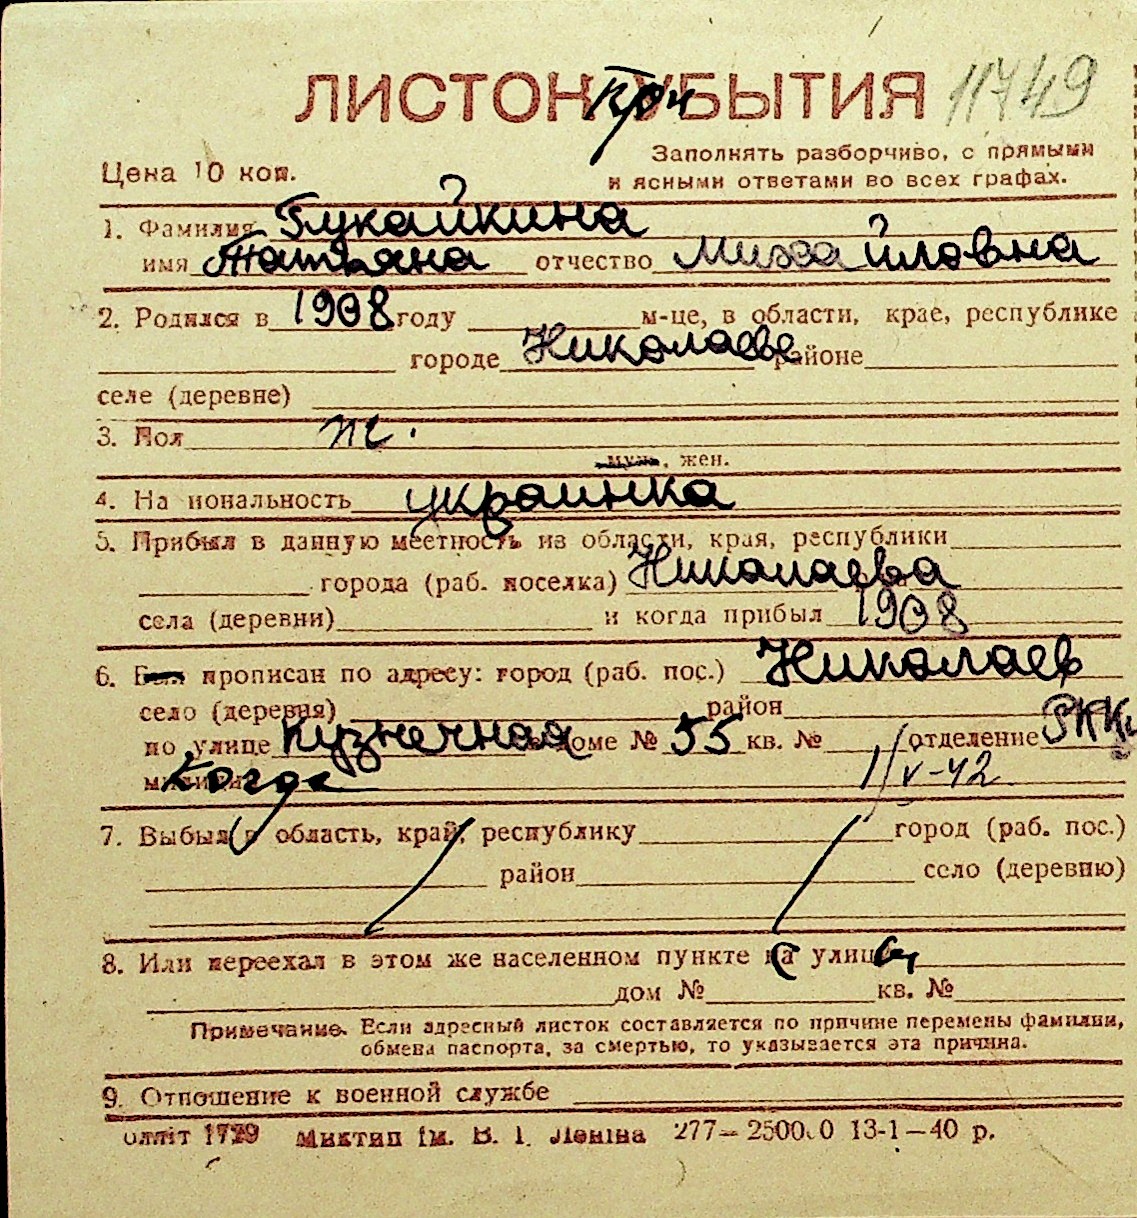 ЛИСТОК УБЫТИЯ 11749
Цена 10 коп.
Заполнять разборчиво, с прямыми
и ясными ответами во всех графах.
1. Фамилия Глукайкина
имя Татьяна отчество Михайловна
2. Родился в 1908 году м-це, в области, крае, республике
городе Николаеве районе
селе (деревне)
3. Пол ж.
муж., жен.
4. На иональность украинка
5. Прибыл в данную местность из области, края, республики
города (раб. поселка) Николаева
села (деревни) и когда прибыл 1908
6. Был прописан по адресу: город (раб. пос.) Николаев
село (деревня) район
по улице Кузнечная доме № 55 кв. № отделение РККА
милиции Когда 1/V-42
7. Выбыл в область, край, республику город (раб. пос.)
район село (деревню)
8. Или переехал в этом же населенном пункте на улицу
дом № кв. №
Примечание. Если адресный листок составляется по причине перемены фамилии,
обмена паспорта, за смертью, то указывается эта причина.
9. Отношение к военной службе
блліт 1729 Миктип ім. В. І. Леніна 277—25000 13-1—40 р.